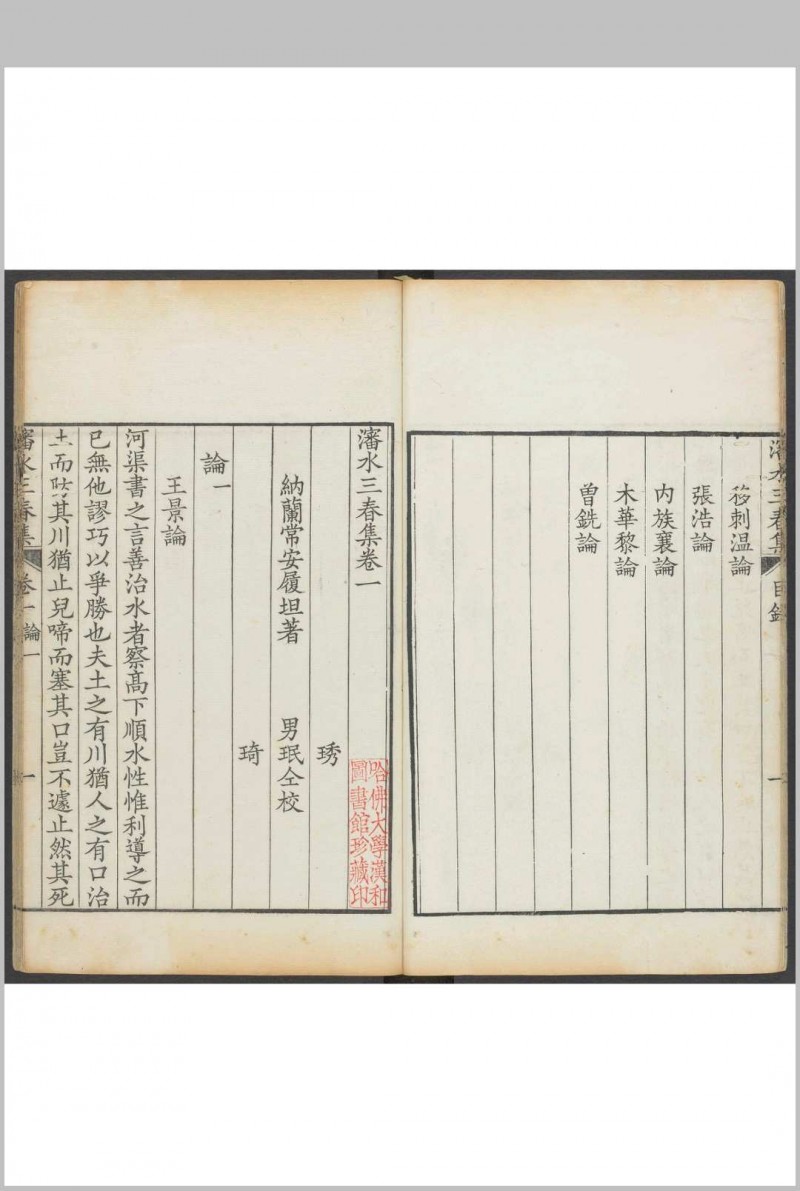 瀋水三春集 目錄 一
移剌溫論
張浩論
內族襄論
木華黎論
曽銑論
瀋水三春集卷一
琇
納蘭常安履坦著 男珉仝校
琦
論一
王景論
河渠書之言善治水者察髙下順水性惟利導之而
已無他謬巧以爭勝也夫土之有川猶人之有口治
土而防其川猶止兒啼而塞其口豈不遽止然其死
瀋水三春集 卷一 論一 一
哈佛大學漢和
圖書館珍藏印